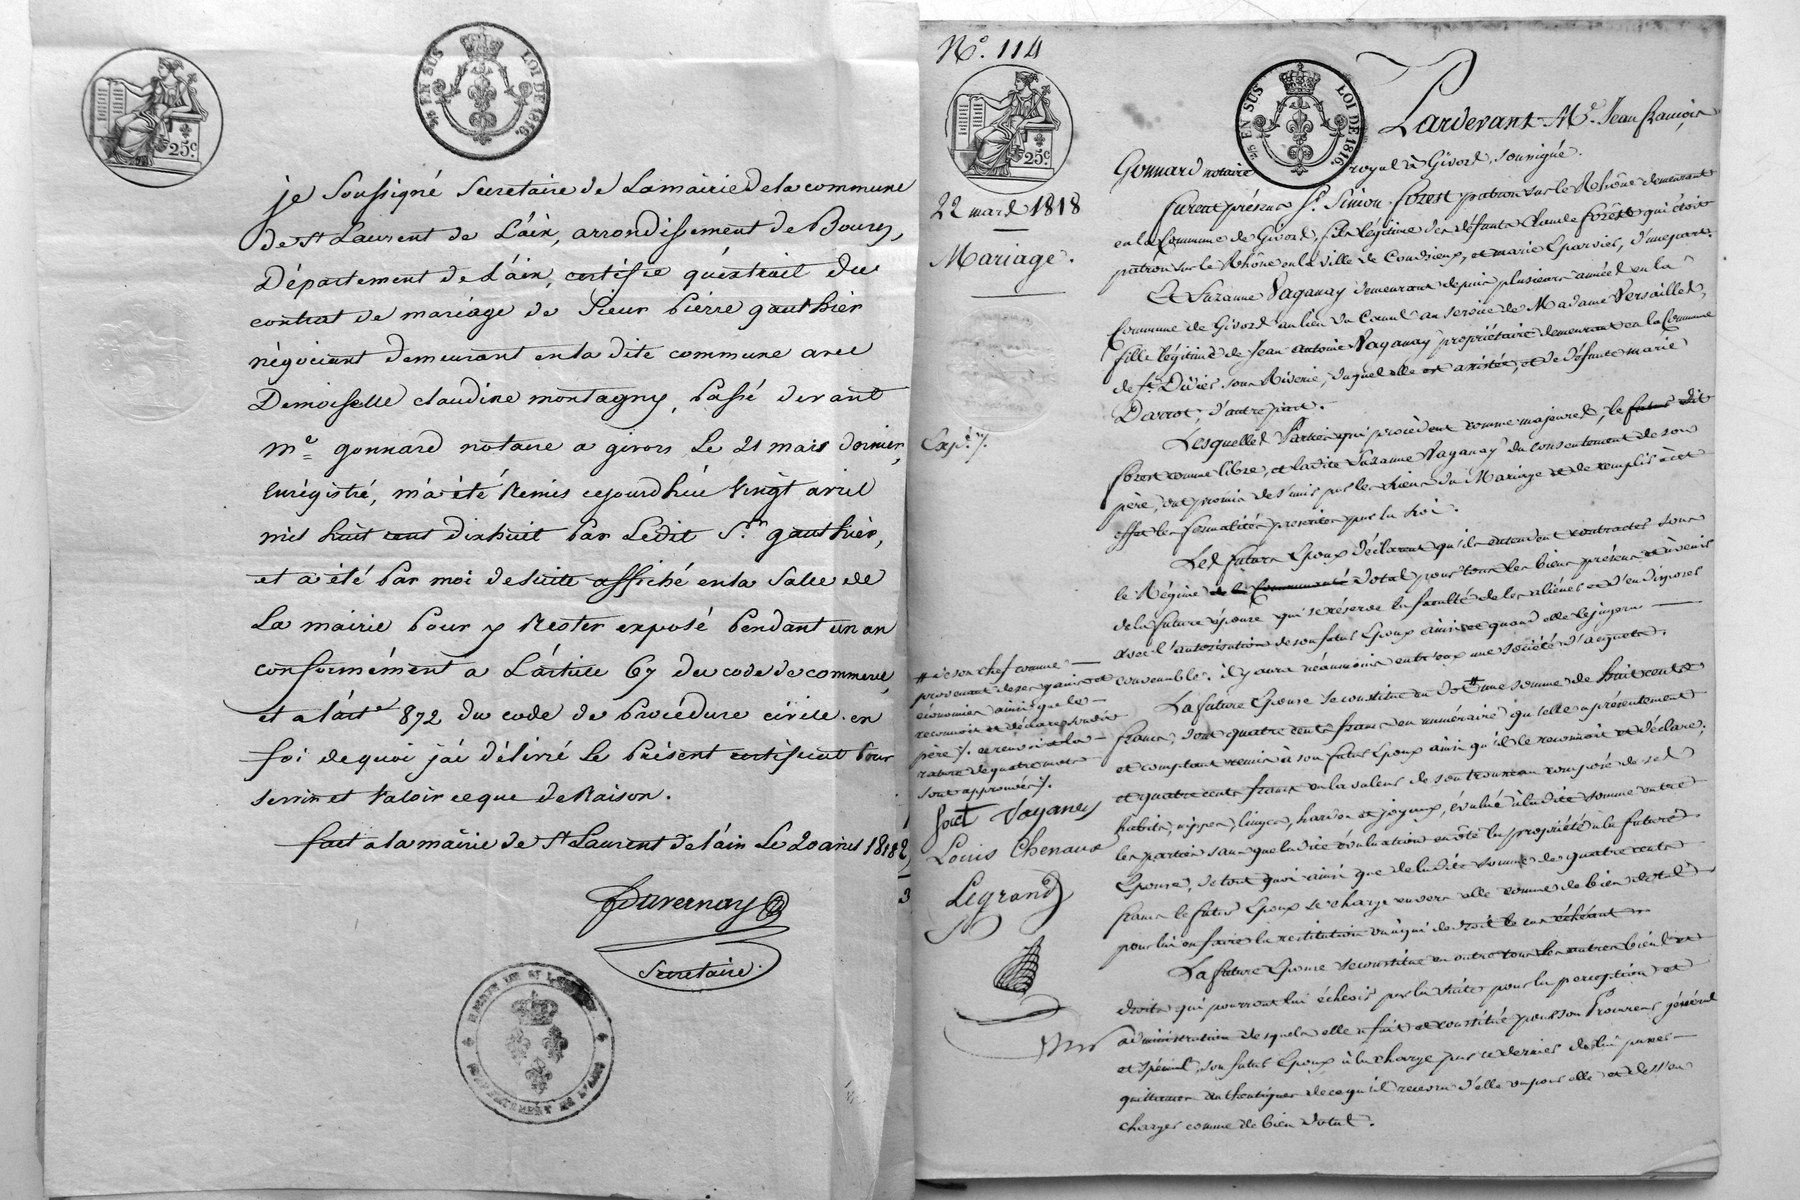 25c
EN SUS LOI DE 1816.
je soussigné secretaire de Lamairie de la commune
de St Laurent de L'ain, arrondissement de Bourg,
Département de L'ain, certifie qu'extrait du
contrat de mariage de sieur pierre gauthier
négociant demeurant en la dite commune avec
Demoiselle claudine montagny, passé devant
me gonnard notaire a givors Le 21 mars dernier,
Enrégistré, m'a été Remis cejourd'hui vingt avril
mil huit cent dixhuit par Ledit Sr gauthier,
et a été par moi de suite affiché en la salle de
La mairie pour y Rester exposé pendant un an
conformément a L'article 67 du code de commerce,
et a l'art 872 du code de procédure civile. en
foi de quoi j'ai délivré Le présent certificat pour
servir et valoir ce que de Raison.
fait a la mairie de St Laurent de l'ain Le 20 avril 1818
Secretaire.
No. 114
25c
EN SUS LOI DE 1816.
22 mars 1818
Mariage.
Pardevant Me. Jean François
Gonnard notaire royal à Givors, soussigné.
furent présens Sr. Simon forest patron sur le Rhône demeurant
en la Commune de Givors, fils légitime des défunts Claude forest qui étoit
patron sur le Rhône en la ville de Condrieux, et marie Eparvier, d'une part.
Et Suzanne Vaganay demeurant depuis plusieurs années en la
Commune de Givors au lieu du Canal au service de Madame Versaillet,
fille légitime de Jean Antoine Vaganay propriétaire demeurant en la Commune
de St. Didier sous Riverie, duquel elle est assistée, et de défunte marie
Darrot, d'autre part.
Lesquelles Parties qui procèdent comme majeures, le futur dit
forest comme libre, et ladite Suzanne Vaganay du consentement de son
père, ont promis de s'unir par les liens du Mariage et de remplir à cet
effet les formalités prescrites par la Loi.
Les futurs Epoux déclarent qu'ils entendent contracter sous
le Régime de la Communauté dotal pour tous les biens présens et à venir
de la future épouse qui se réserve la faculté de les aliéner et d'en disposer
avec l'autorisation de son futur Epoux ainsi et quand elle le jugera
convenable: il y aura néanmoins entr'eux une société d'acquets.
# de son chef comme
provenant de ses gains et
économies ainsi que le
reconnoit et déclare son dit
père
rature de quatre mots
sont approuvés
La future Epouse se constitue en Dot # une somme de huit cents
francs, dont quatre cents francs en numéraire qu'elle a présentement
et comptant remis à son futur Epoux ainsi qu'il le reconnoit et déclare;
et quatre cents francs en la valeur de son trousseau composé de ses
habits, nippes, linges, hardes et joyaux, évalué à ladite somme entre
les parties sans que ladite évaluation en ôte la propriété à la future
Epouse, de tout quoi ainsi que de ladite somme de quatre cents
francs le futur Epoux se charge envers elle comme de bien dotal
pour lui en faire la restitution vu à qui de droit le cas échéant.
La future Epouse se constitue en outre tous les autres biens et
droits qui pourront lui échoir par la suite pour la perception et
administration desquels elle a fait et constitué pour son Procureur général
et spécial, son futur Epoux à la charge par ce dernier de lui passer
quittances authentiques de ce qu'il recevra d'elle ou pour elle et de s'en
charger comme de bien dotal.
foret Vaganay
Louis Chenaux
Legrand